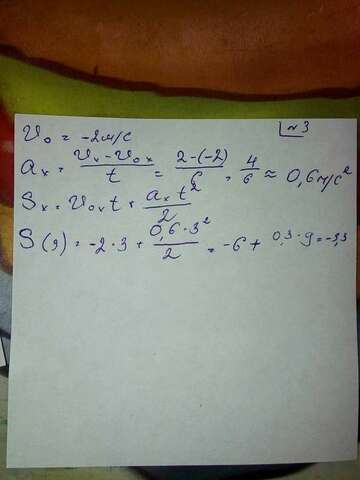 №3
v₀ = -2м/с
aₓ = (vₓ - v₀ₓ)/t = (2-(-2))/6 = 4/6 ≈ 0,6м/с²
Sₓ = v₀ₓt + aₓt²/2
S(9) = -2·3 + 0,6·3²/2 = -6 + 0,3·9 = -3,3